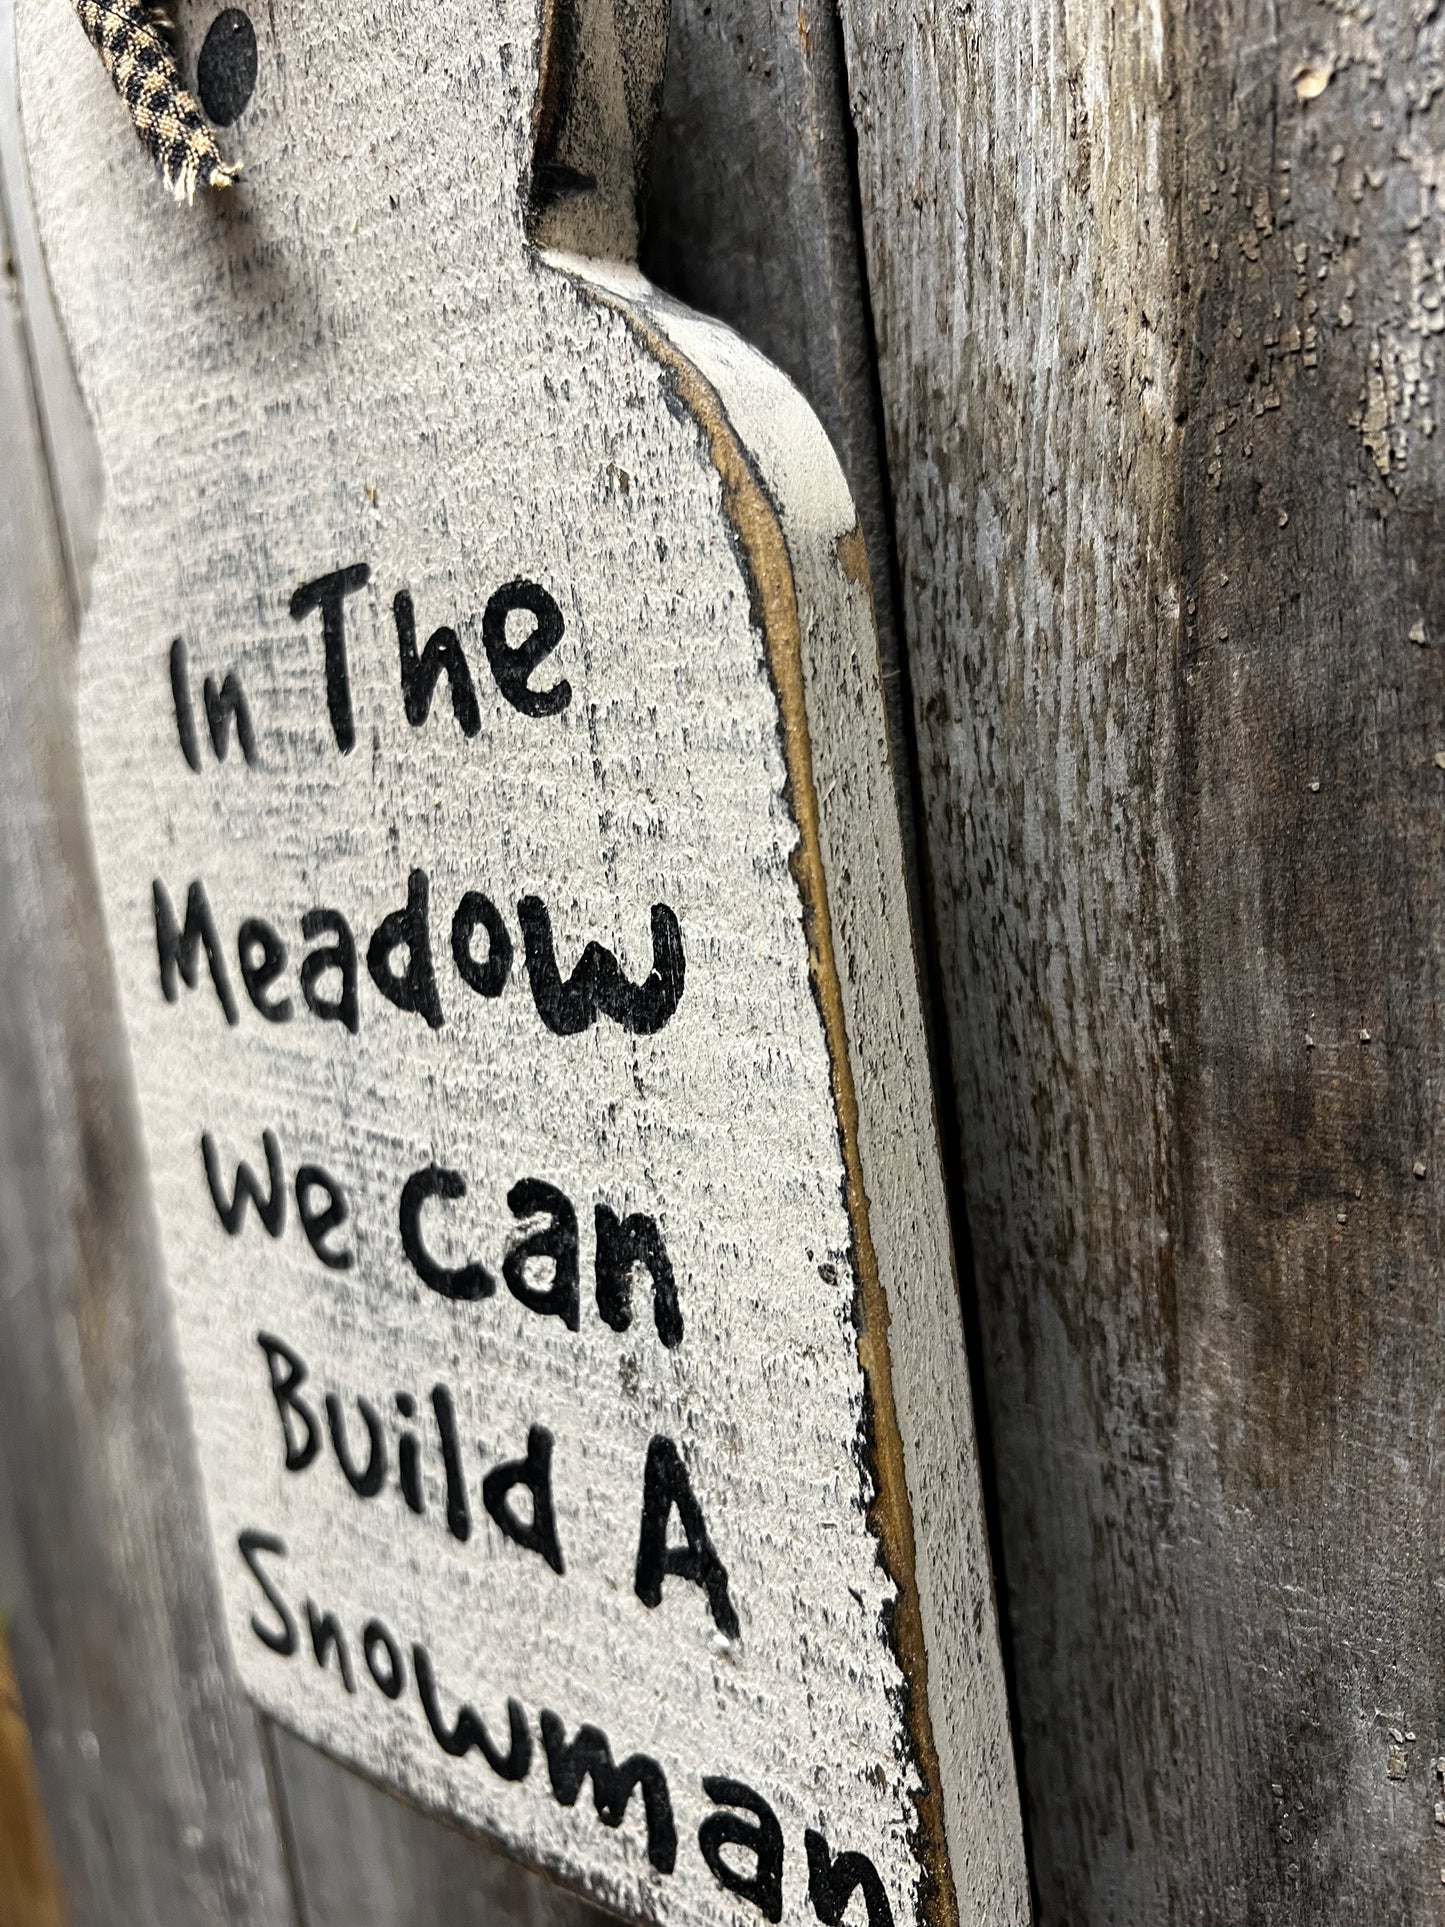 In The
Meadow
We Can
Build A
Snowman